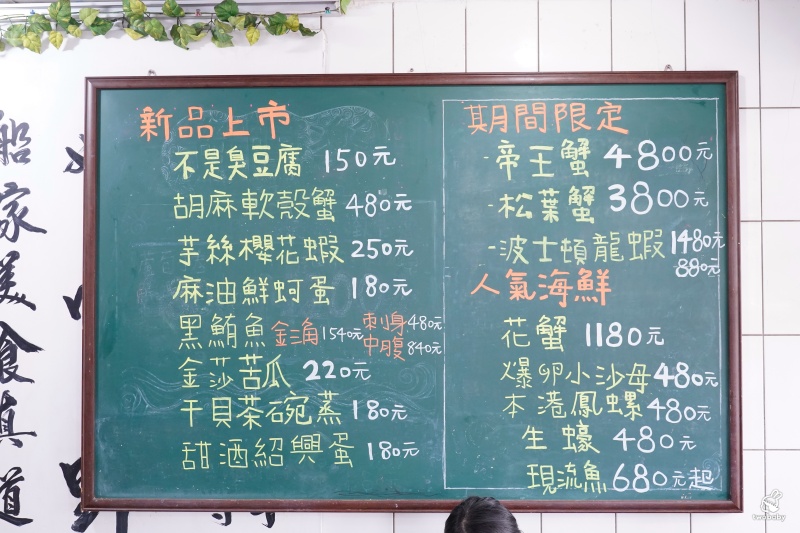 新品上市
不是臭豆腐 150元
胡麻軟殼蟹 480元
芋絲櫻花蝦 250元
麻油鮮蚵蛋 180元
黑鮪魚 金三角 1540元 刺身 480元
中腹 840元
金莎苦瓜 220元
干貝茶碗蒸 180元
甜酒紹興蛋 180元
期間限定
-帝王蟹 4800元
-松葉蟹 3800元
-波士頓龍蝦 1480元
880元
人氣海鮮
花蟹 1180元
爆卵小沙母 480元
本港鳳螺 480元
生蠔 480元
現流魚 680元起
船家美食真道
twobaby